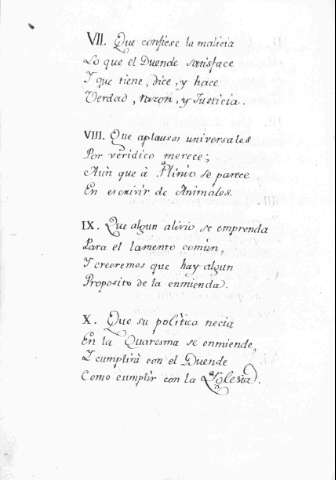 VII. Que confiese la malicia
Lo que el Duende satisface
Y que tiene, dice, y hace
Verdad, razon, y Justicia.
VIII. Que aplausos universales
Por verídico merece;
Aún que à Plinio se parece
En escrivir de Animales.
IX. Que algun alivio se emprenda
Para el lamento común,
Y creeremos que hay algun
Proposito de la enmienda.
X. Que su política necia
En la Quaresma se enmiende,
Y cumplirá con el Duende
Como cumplir con la Yglesia.